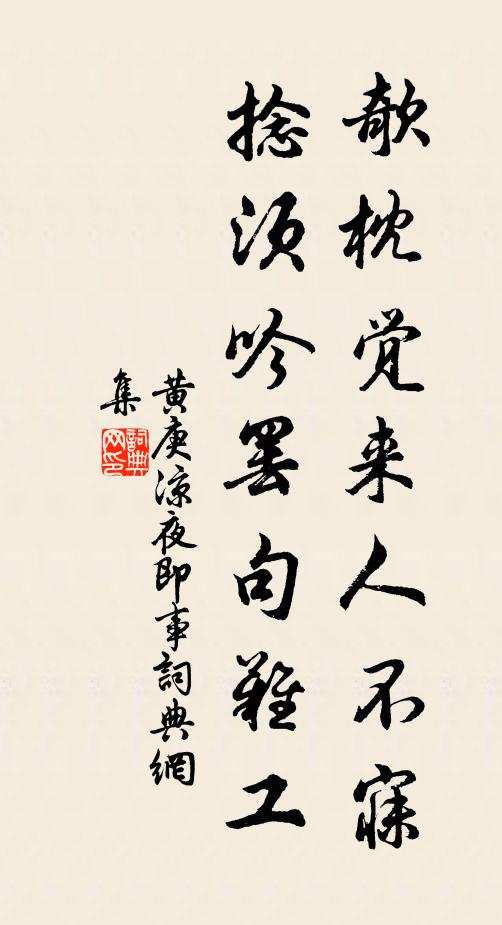 欹枕觉来人不寐
捻须吟罢句難工
黄庚凉夜即事詞典網
集
詞典网印